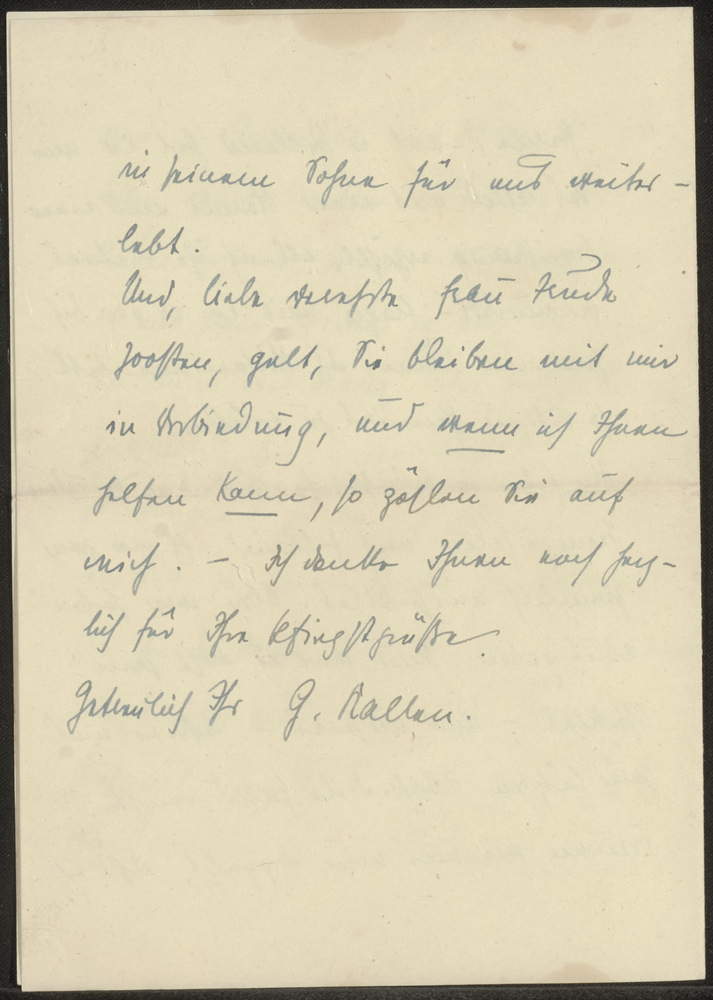 in seinem Sohne für uns weiter-
lebt.
Und, liebe verehrte Frau Trude
Joosten, gelt, Sie bleiben mit mir
in Verbindung, und wenn ich Ihnen
helfen kann, so zählen Sie auf
mich. – Ich danke Ihnen noch herz-
lich für Ihre Pfingstgrüße.
Getreulich Ihr G. Kallen.